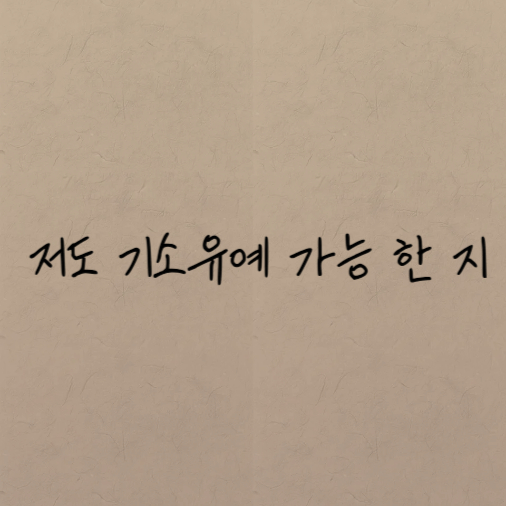 저도 기소유예 가능 한 지